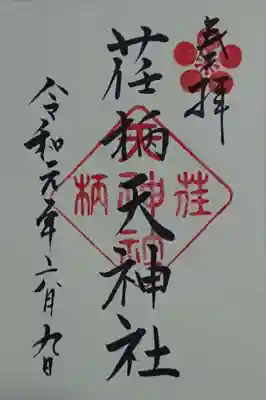 奉拝
荏柄天神社
荏柄天神社
令和元年六月九日